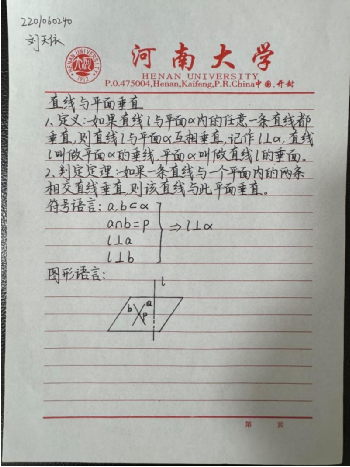 2201060240
刘天依
河南大学
HENAN UNIVERSITY
P.O.475004,Henan,Kaifeng,P.R.China中国.开封
直线与平面垂直
1、定义:如果直线l与平面α内的任意一条直线都
垂直,则直线l与平面α互相垂直,记作l⊥α,直线
l叫做平面α的垂线,平面α叫做直线l的垂面。
2、判定定理:如果一条直线与一个平面内的两条
相交直线垂直,则该直线与此平面垂直。
符号语言:a,b⊂α
a∩b=P
l⊥a
l⊥b
⇒l⊥α
图形语言:
l
b a
P
第 页